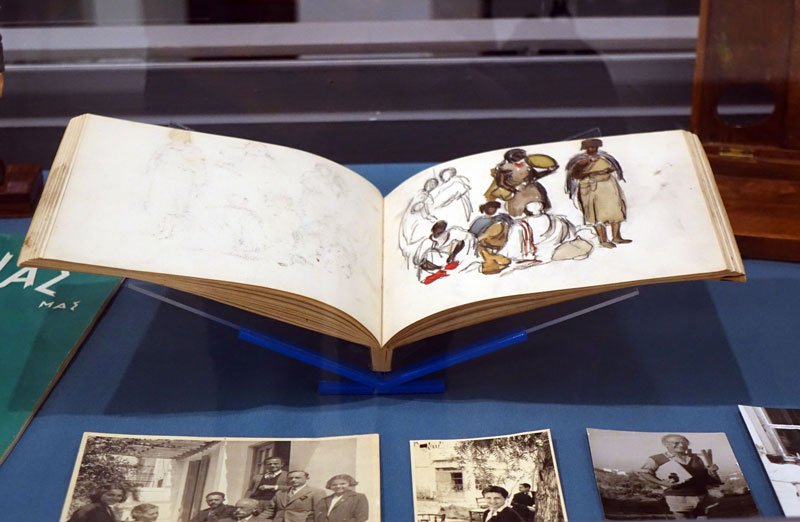 ΙΑΣ
ΜΑΣ